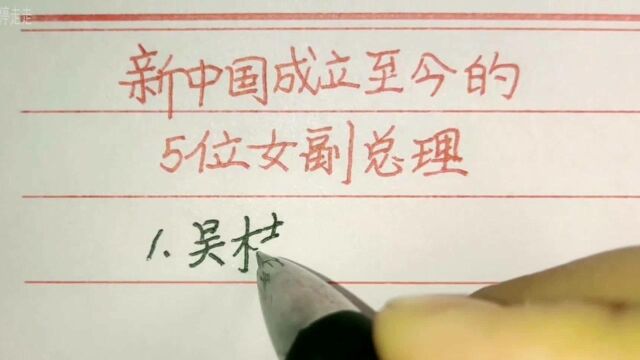 走走
新中国成立至今的
5位女副总理
1.吴